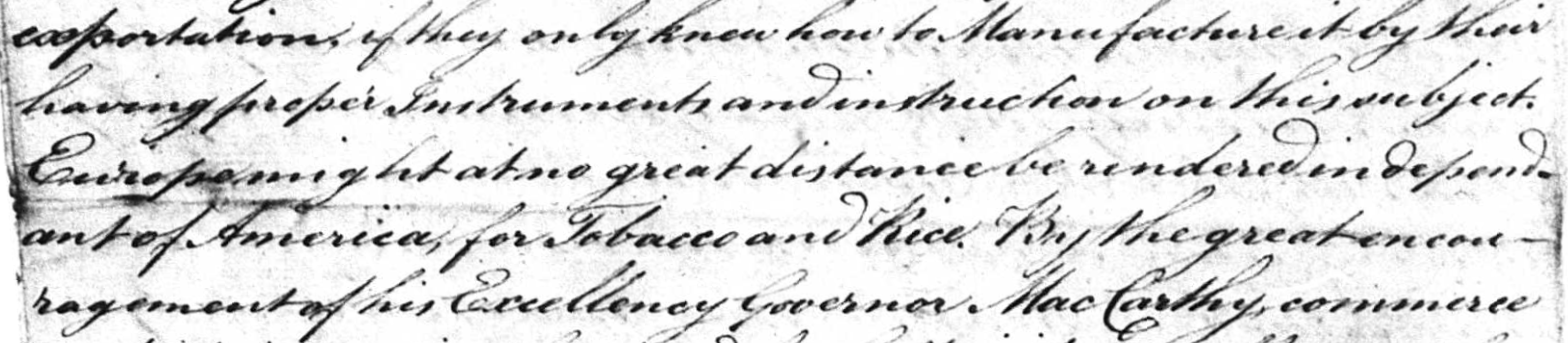 exportation, if they only knew how to Manufacture it by their
having proper Instruments and instruction on this subject.
Europe might at no great distance be rendered independ-
ant of America, for Tobacco and Rice. By the great encou-
ragement of his Excellency Governor MacCarthy, commerce